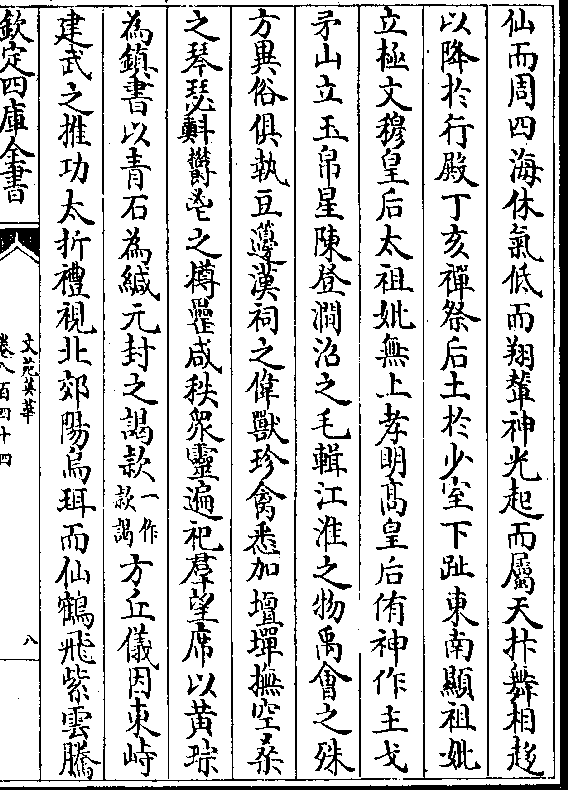 仙而周四海休氣低而翔輦神光起而屬天抃舞相趍
以降於行殿丁亥禪祭后土於少室下趾東南顯祖妣
立極文穆皇后太祖妣無上孝明髙皇后侑神作主戈
矛山立玉帛星陳登澗沼之毛輯江淮之物禹會之殊
方異俗俱執豆籩漢祠之偉獸珍禽悉加壇墠撫空桑
之琴瑟斞鬱鬯之樽罍咸秩衆靈遍祀羣望席以黄琮
為鎮書以青石為緘元封之謁款一作款謁方丘儀因東峙
建武之推功太折禮視北郊陽烏珥而仙鶴飛紫雲騰
欽定四庫全書
文苑英華
卷八百四十四
八